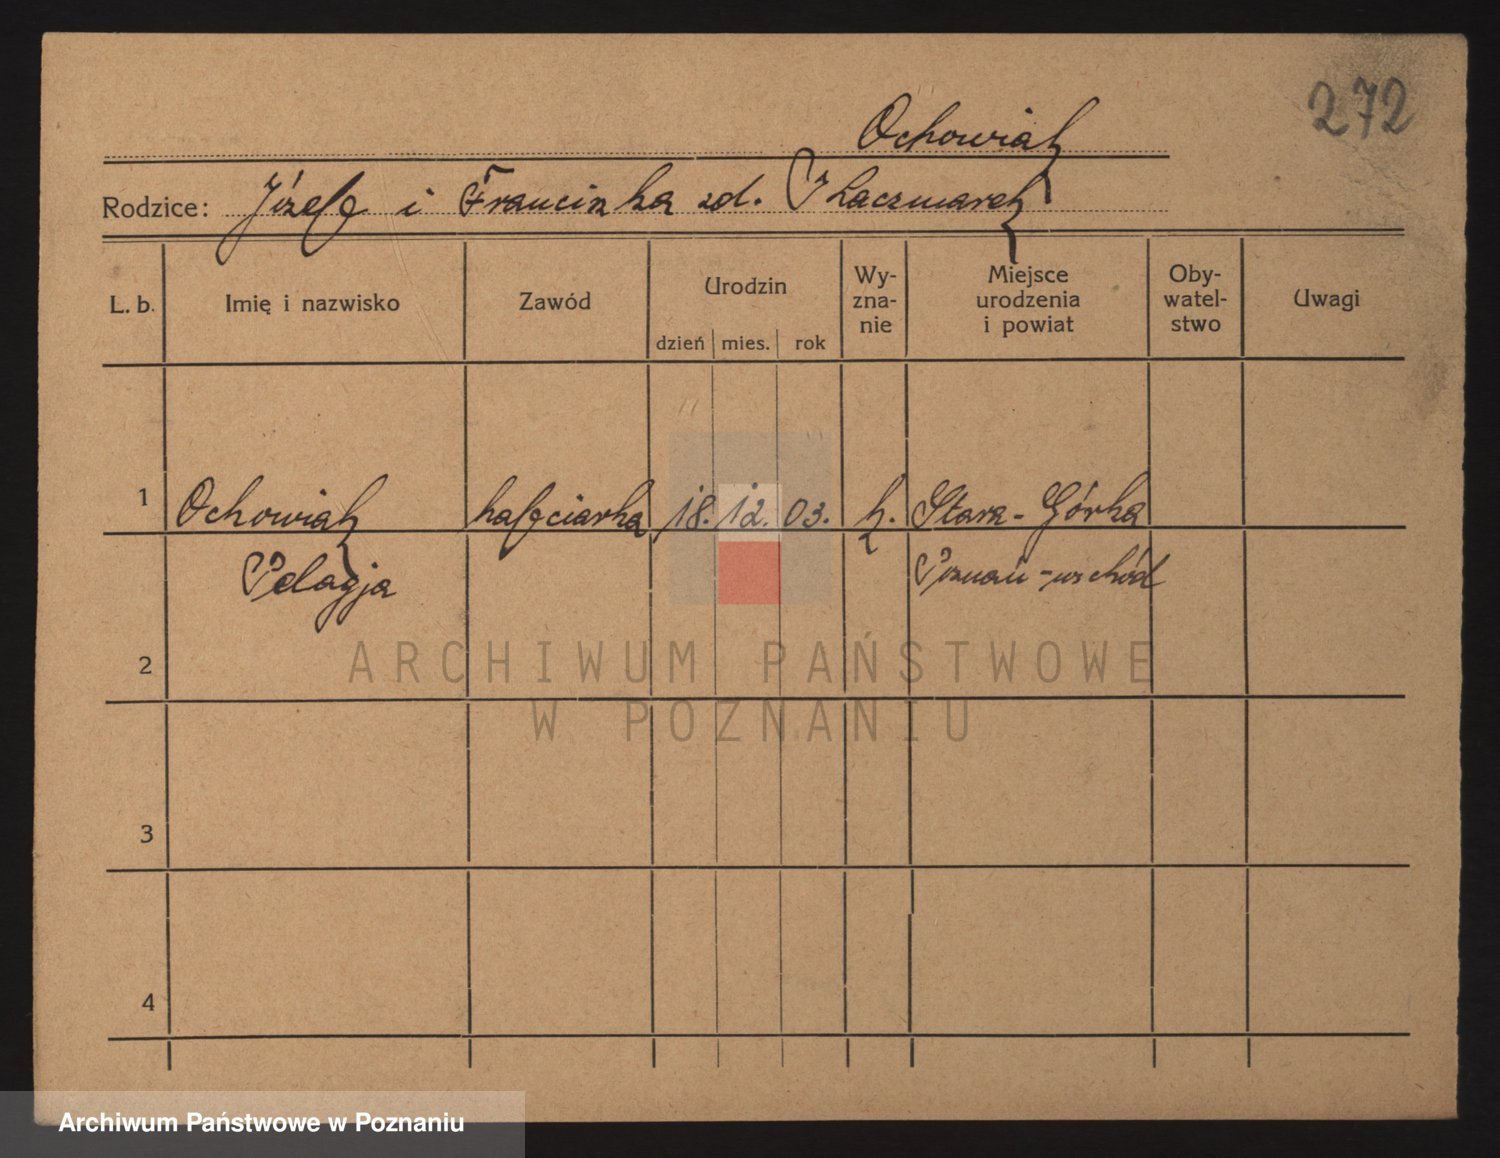 272
Ochowiak
Rodzice: Józef i Franciszka zd. Kaczmarek
L. b. Imię i nazwisko Zawód Urodzin dzień mies. rok Wy-zna-nie Miejsce urodzenia i powiat Oby-watel-stwo Uwagi
1 Ochowiak hafciarka 18. 12. 03. k. Stara-Górka
Pelagja Poznań-wschód
2
ARCHIWUM PAŃSTWOWE
W POZNANIU
3
4
Archiwum Państwowe w Poznaniu